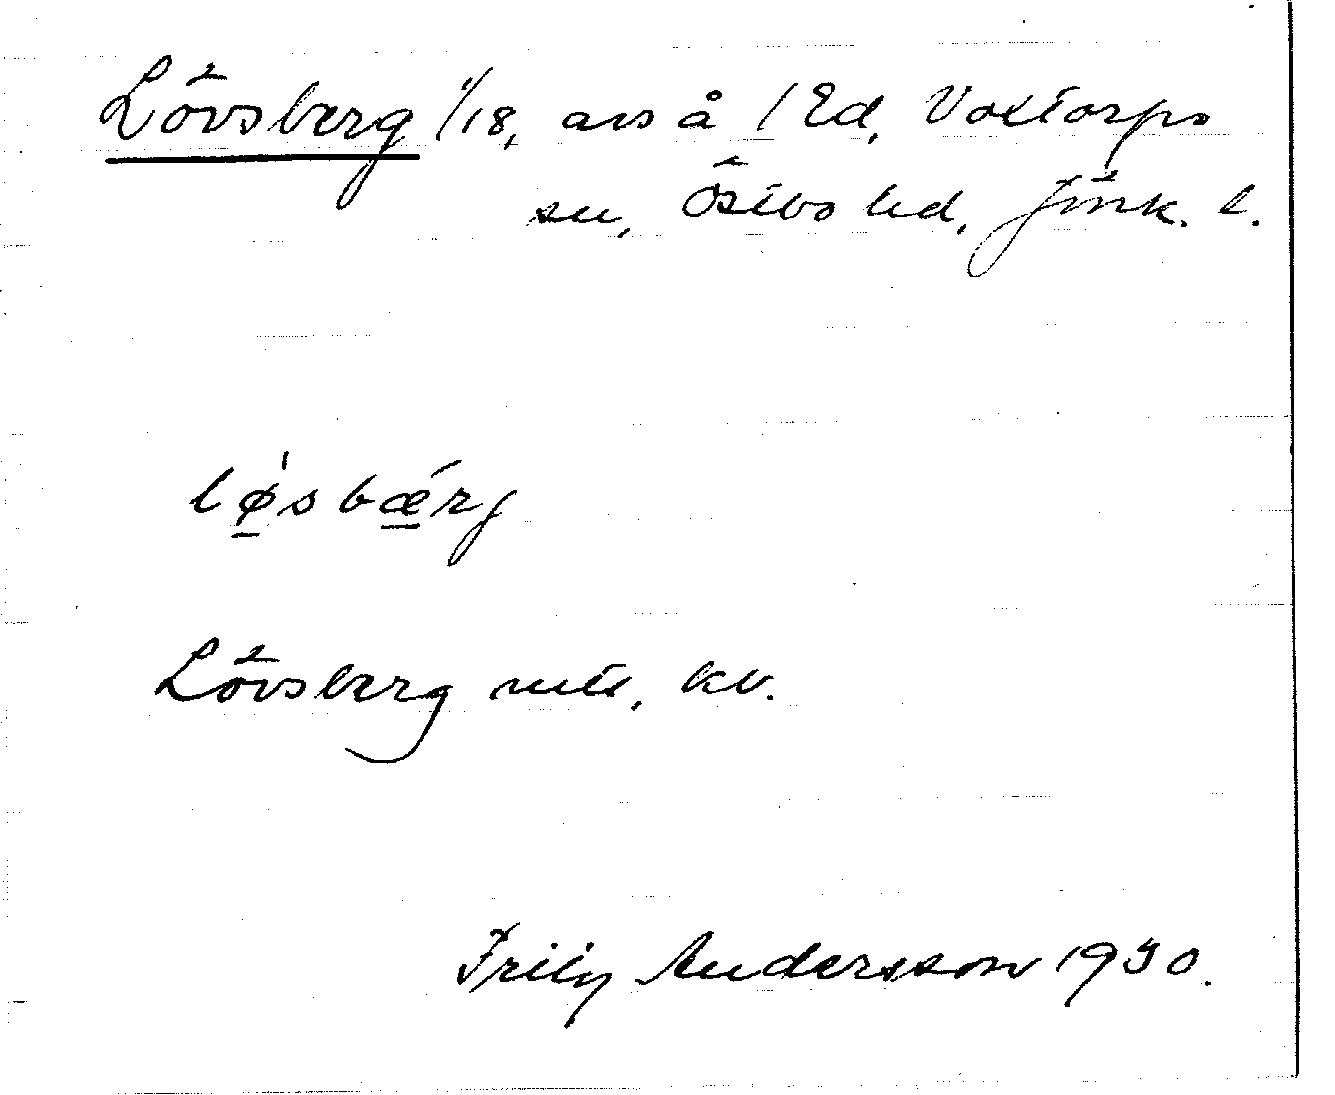 Lövsberg 1/18, avs å / Ed, Voxtorps
sn, Östbo hd, Jönk. l.
lø̱̍sbǽ̱rj
Lövsberg mtl. kv.
Andersson 1930.